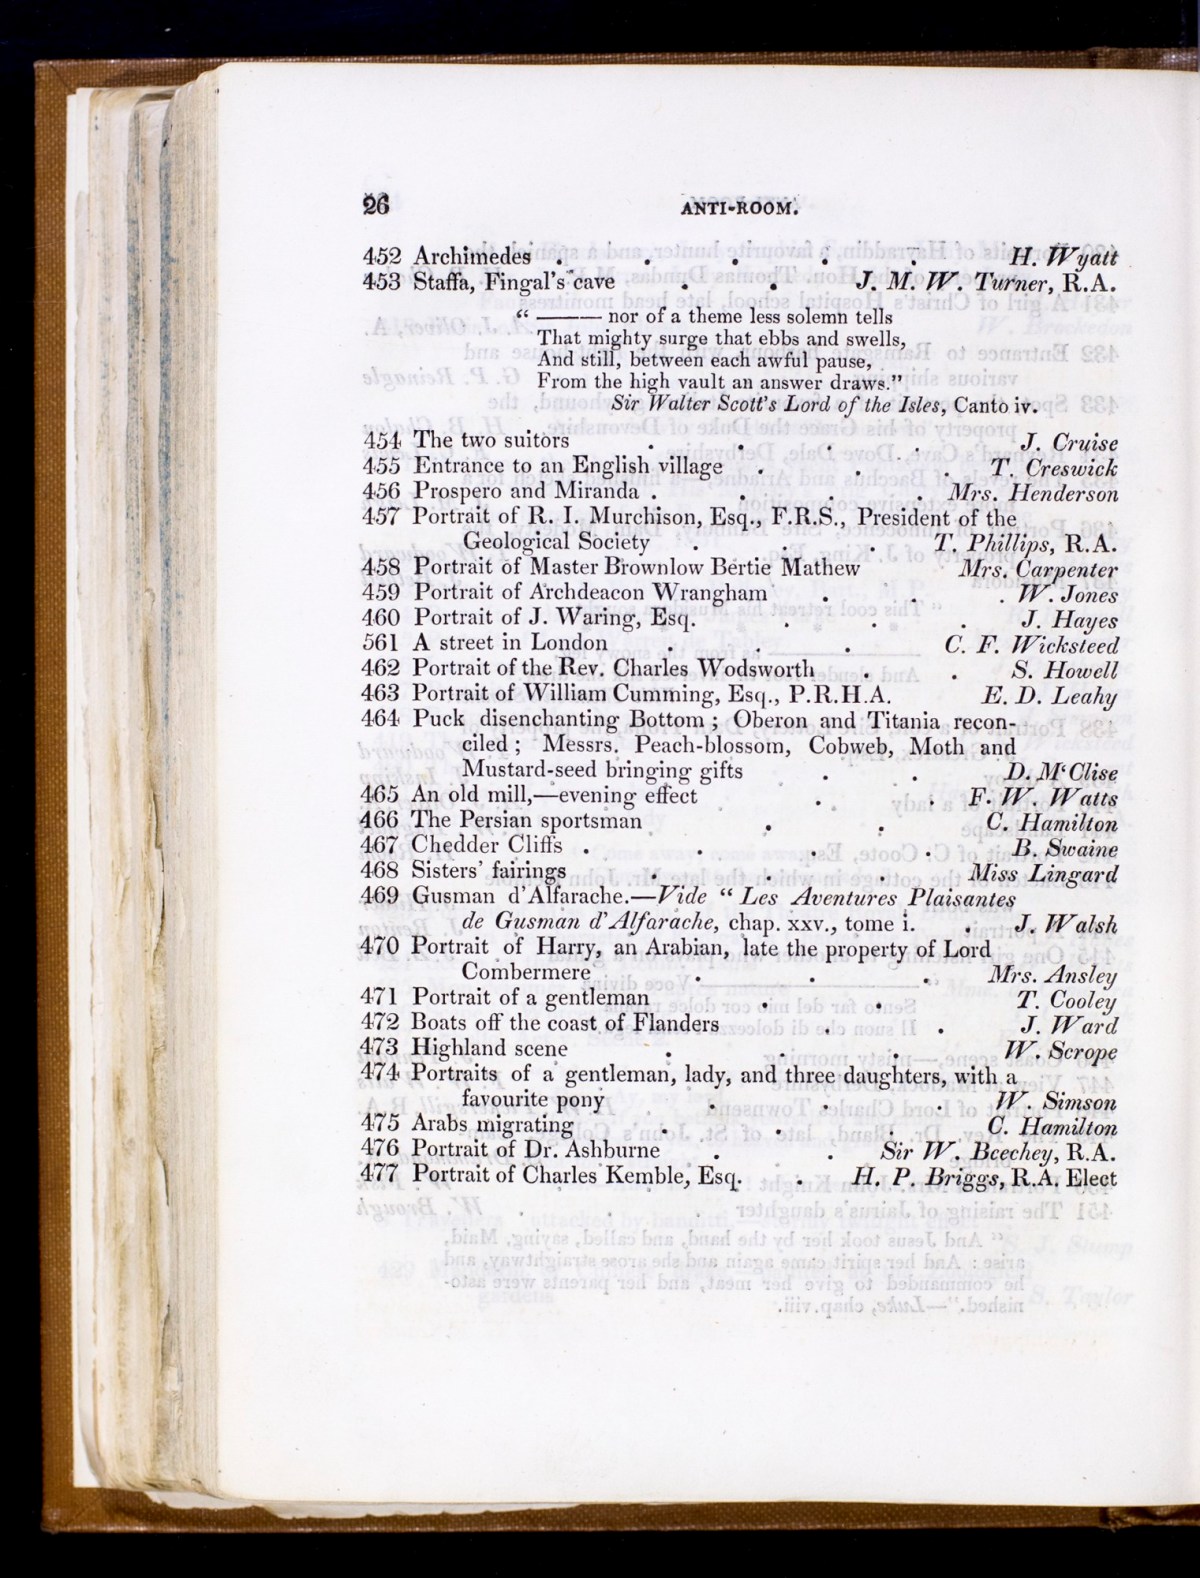 26 ANTI-ROOM.
452 Archimedes . . . . . H. Wyatt
453 Staffa, Fingal's cave . . J. M. W. Turner, R.A.
“ ——— nor of a theme less solemn tells
That mighty surge that ebbs and swells,
And still, between each awful pause,
From the high vault an answer draws.”
Sir Walter Scott's Lord of the Isles, Canto iv.
454 The two suitors . . . . J. Cruise
455 Entrance to an English village . . . T. Creswick
456 Prospero and Miranda . . . . Mrs. Henderson
457 Portrait of R. I. Murchison, Esq., F.R.S., President of the
Geological Society . . . T. Phillips, R.A.
458 Portrait of Master Brownlow Bertie Mathew Mrs. Carpenter
459 Portrait of Archdeacon Wrangham . . . W. Jones
460 Portrait of J. Waring, Esq. . . . J. Hayes
561 A street in London . . . C. F. Wicksteed
462 Portrait of the Rev. Charles Wodsworth . . S. Howell
463 Portrait of William Cumming, Esq., P.R.H.A. E. D. Leahy
464 Puck disenchanting Bottom ; Oberon and Titania recon-
ciled ; Messrs. Peach-blossom, Cobweb, Moth and
Mustard-seed bringing gifts . . D. M‘Clise
465 An old mill,—evening effect . . F. W. Watts
466 The Persian sportsman . . C. Hamilton
467 Chedder Cliffs . . . . B. Swaine
468 Sisters' fairings . . . Miss Lingard
469 Gusman d'Alfarache.—Vide “ Les Aventures Plaisantes
de Gusman d'Alfarache, chap. xxv., tome i. . J. Walsh
470 Portrait of Harry, an Arabian, late the property of Lord
Combermere . . . Mrs. Ansley
471 Portrait of a gentleman . . T. Cooley
472 Boats off the coast of Flanders . . J. Ward
473 Highland scene . . . W. Scrope
474 Portraits of a gentleman, lady, and three daughters, with a
favourite pony . . . W. Simson
475 Arabs migrating . . . C. Hamilton
476 Portrait of Dr. Ashburne . . Sir W. Beechey, R.A.
477 Portrait of Charles Kemble, Esq. . H. P. Briggs, R.A. Elect